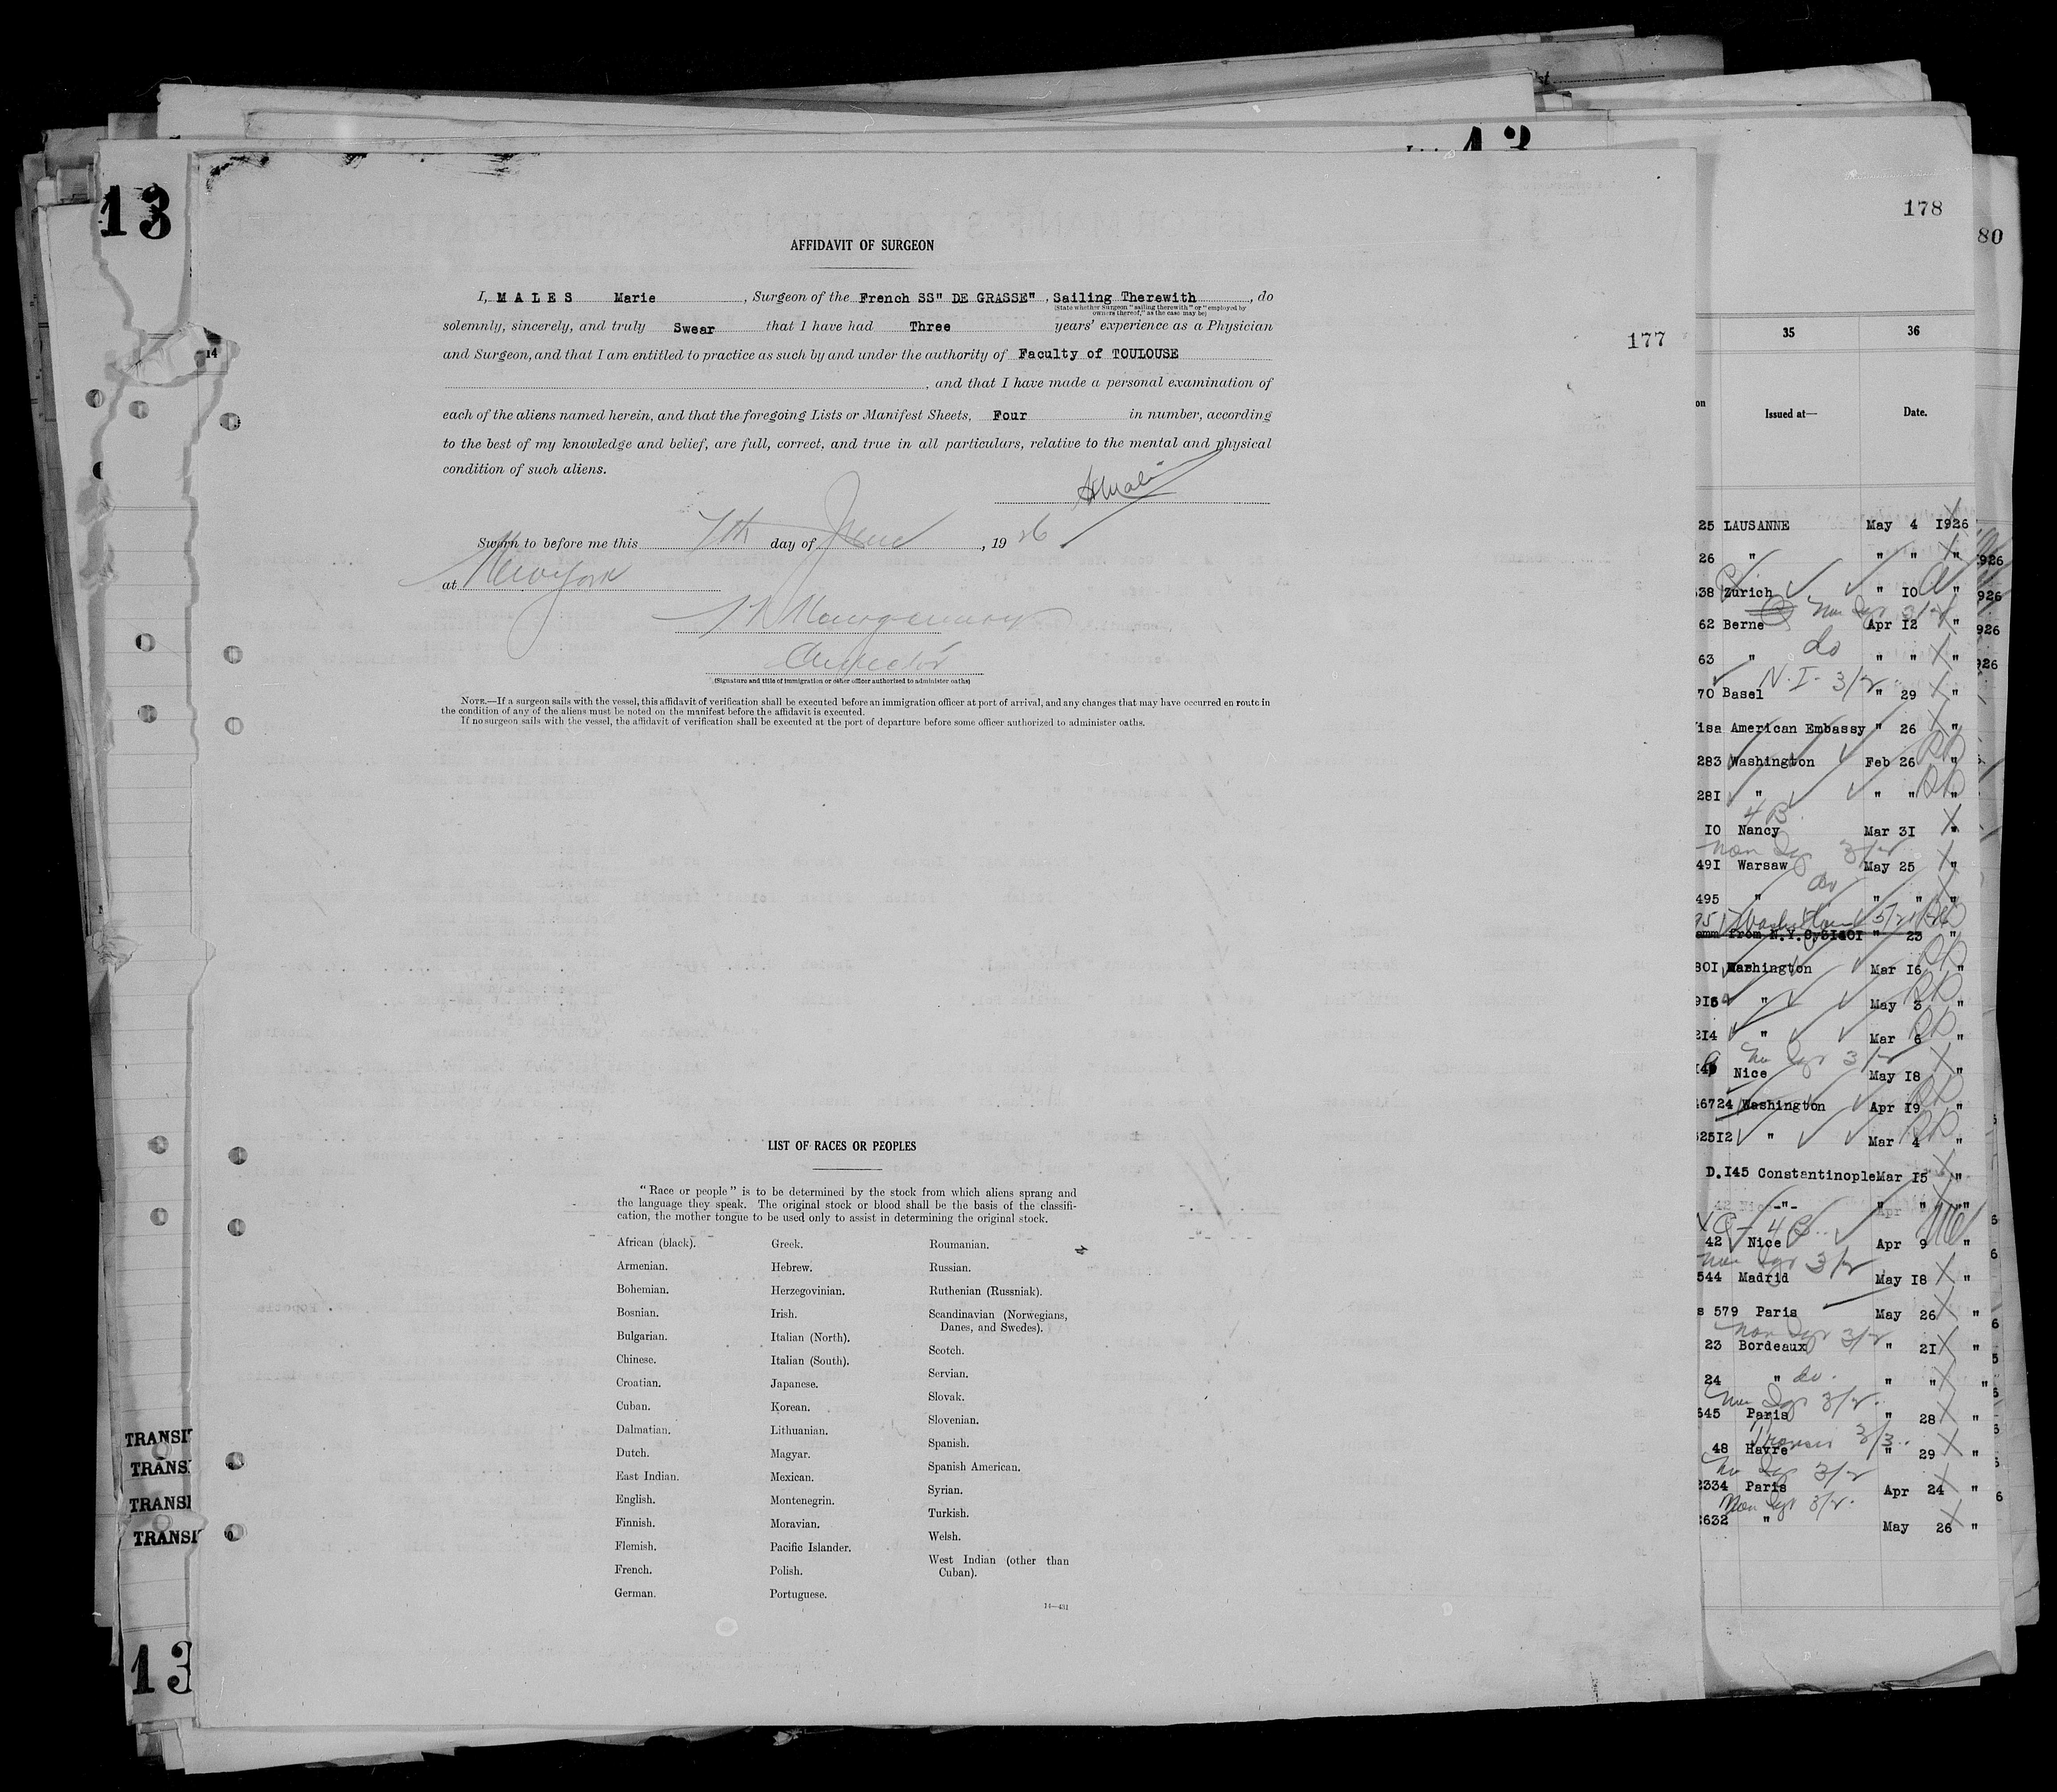 13
178
80
177
14
AFFIDAVIT OF SURGEON
I, MALES Marie, Surgeon of the French SS" DE GRASSE", Sailing Therewith, do
(State whether Surgeon "sailing therewith" or "employed by
owners thereof," as the case may be)
solemnly, sincerely, and truly Swear that I have had Three years' experience as a Physician
and Surgeon, and that I am entitled to practice as such by and under the authority of Faculty of TOULOUSE
, and that I have made a personal examination of
each of the aliens named herein, and that the foregoing Lists or Manifest Sheets, Four in number, according
to the best of my knowledge and belief, are full, correct, and true in all particulars, relative to the mental and physical
condition of such aliens.
Sworn to before me this 7th day of June, 1926
at New York
(Signature and title of immigration or other officer authorized to administer oaths)
NOTE.—If a surgeon sails with the vessel, this affidavit of verification shall be executed before an immigration officer at port of arrival, and any changes that may have occurred en route in
the condition of any of the aliens must be noted on the manifest before the affidavit is executed.
If no surgeon sails with the vessel, the affidavit of verification shall be executed at the port of departure before some officer authorized to administer oaths.
LIST OF RACES OR PEOPLES
"Race or people" is to be determined by the stock from which aliens sprang and
the language they speak. The original stock or blood shall be the basis of the classifi-
cation, the mother tongue to be used only to assist in determining the original stock.
African (black).
Armenian.
Bohemian.
Bosnian.
Bulgarian.
Chinese.
Croatian.
Cuban.
Dalmatian.
Dutch.
East Indian.
English.
Finnish.
Flemish.
French.
German.
Greek.
Hebrew.
Herzegovinian.
Irish.
Italian (North).
Italian (South).
Japanese.
Korean.
Lithuanian.
Magyar.
Mexican.
Montenegrin.
Moravian.
Pacific Islander.
Polish.
Portuguese.
Roumanian.
Russian.
Ruthenian (Russniak).
Scandinavian (Norwegians,
Danes, and Swedes).
Scotch.
Servian.
Slovak.
Slovenian.
Spanish.
Spanish American.
Syrian.
Turkish.
Welsh.
West Indian (other than
Cuban).
14—431
35 36
Issued at— Date.
25 LAUSANNE May 4 1926
26 " " " "
38 Zurich " 10 "
62 Berne Apr 12 "
do
63 " " " "
N.I. 3/2
70 Basel " 29 "
isa American Embassy " 26 "
283 Washington Feb 26 "
281 " " " "
4 B
10 Nancy Mar 31 "
491 Warsaw May 25 "
495 " " " "
" 23 "
801 Washington Mar 16 "
916 " May 3 "
214 " Mar 6 "
Nice May 18 "
6724 Washington Apr 19 "
2512 " Mar 4 "
D.145 Constantinople Mar 15 "
42 Nice Apr 9 "
544 Madrid May 18 "
s 579 Paris May 26 "
23 Bordeaux " 21 "
24 " do. " " "
645 Paris " 28 "
48 Havre " 29 "
2334 Paris Apr 24 "
2632 " May 26 "
TRANSI
TRANS
TRANSI
TRANSI
13